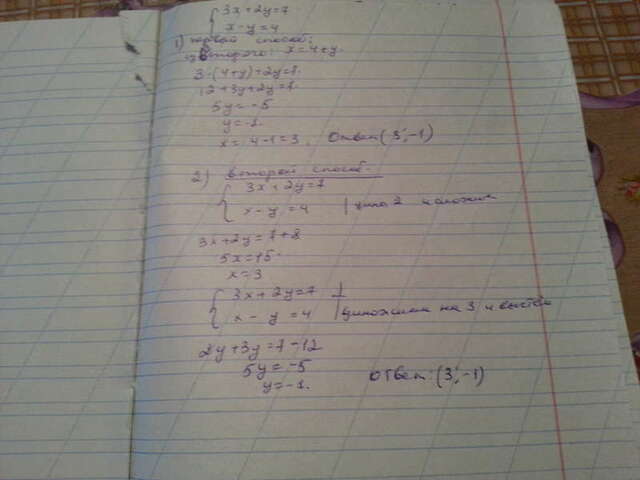 3x+2y=7
x-y=4
1) первый способ:
из второго: x=4+y.
3·(4+y)+2y=7.
12+3y+2y=7.
5y=-5
y=-1.
x=4-1=3. Ответ(3;-1)
2) второй способ.
3x+2y=7
x-y=4 | умно 2 и сложим
3x+2x=7+8
5x=15.
x=3
3x+2y=7
x-y=4 | умножим на 3 и вычтем
2y+3y=7-12
5y=-5
y=-1. Ответ: (3;-1)